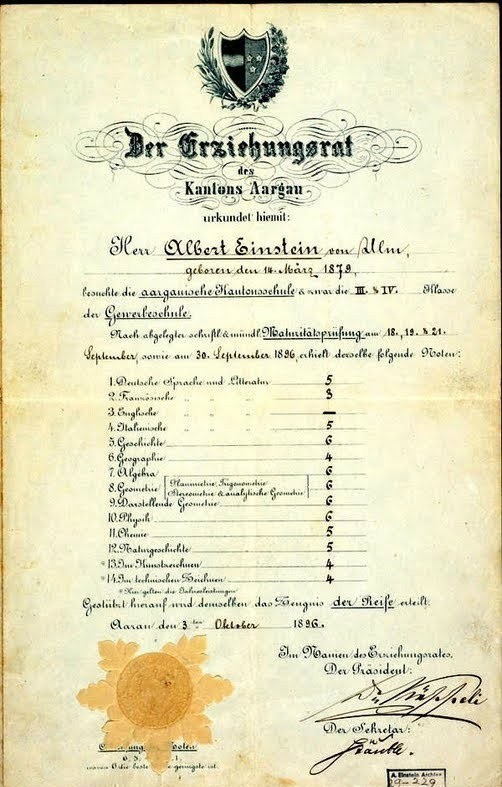 Der Erziehungsrat
des
Kantons Aargau
urkundet hiemit:
Herr Albert Einstein von Ulm,
geboren den 14. März 1879,
besuchte die aargauische Kantonsschule & zwar die III. & IV. Klasse
der Gewerbeschule.
Nach abgelegter schriftl. & mündl. Maturitätsprüfung am 18., 19. & 21.
September, sowie am 30. September 1896, erhielt derselbe folgende Noten:
1. Deutsche Sprache und Litteratur 5
2. Französische " " " 3
3. Englische " " " —
4. Italienische " " " 5
5. Geschichte 6
6. Geographie 4
7. Algebra 6
8. Geometrie Planimetrie, Trigonometrie 6
Stereometrie & analytische Geometrie
9. Darstellende Geometrie 6
10. Physik 6
11. Chemie 5
12. Naturgeschichte 5
*13. Im Kunstzeichnen 4
*14. Im technischen Zeichnen 4
*Hier gelten die Jahresleistungen
Gestützt hierauf wird demselben das Zeugnis der Reife erteilt.
Aarau den 3ten Oktober 1896.
Im Namen des Erziehungsrates,
Der Präsident:
Der Sekretär:
Noten
6, 5, 1.
wovon 6 die beste geringste ist.
A. Einstein Archive
29-229